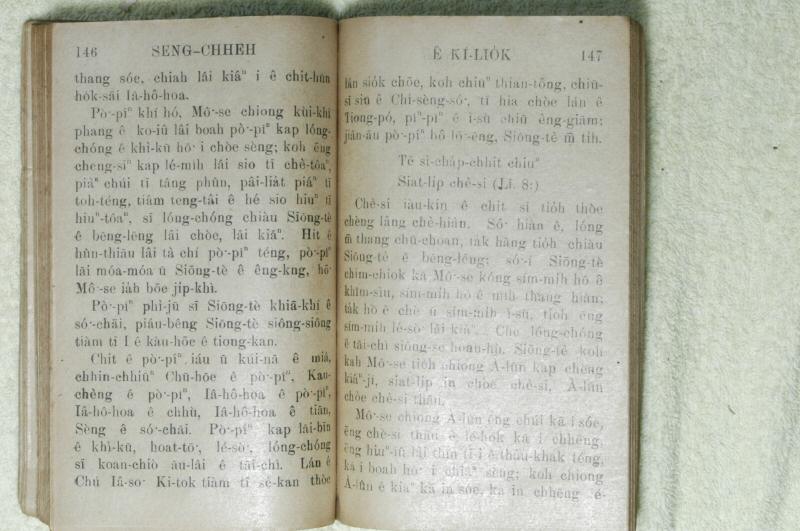 146 SENG-CHHEH
thang sóe, chiah lâi kiâⁿ i ê chit-hūn
ho̍k-sāi Iâ-hô-hoa.
Pò͘-pîⁿ khí hó, Mô͘-se chiong kùi-khì
phang ê ko-iû lâi boah pò͘-pîⁿ kap lóng-
chóng ê khì-kū hō͘ i chòe sèng; koh ēng
cheng-sîⁿ kap lé-mi̍h lâi sio tī chè-tôaⁿ,
piàⁿ chúi tī tâng phûn, pâi-lia̍t piáⁿ tī
toh-téng, tiám teng-tâi ê hé sio hiuⁿ tī
hiuⁿ-tôaⁿ, sī lóng-chóng chiàu Siōng-tè
ê bēng-lēng lâi chòe, lâi kiâⁿ. Hit ê
hûn-thiāu lâi tà chí pò͘-pîⁿ téng, pò͘-pîⁿ
lāi móa-móa ū Siōng-tè ê êng-kng, hō͘
Mô͘-se ia̍h bōe ji̍p-khì.
Pò͘-pîⁿ phì-jū sī Siōng-tè khiā-khí ê
só͘-chāi, piáu-bêng Siōng-tè siông-siông
tiàm tī I ê kàu-hōe ê tiong-kan.
Chit ê pò͘-pîⁿ iáu ū kúi-nā ê miâ,
chhin-chhiūⁿ Chū-hōe ê pò͘-pîⁿ, Kan-
chèng ê pò͘-pîⁿ, Iâ-hô-hoa ê pò͘-pîⁿ,
Iâ-hô-hoa ê chhù, Iâ-hô-hoa ê tiān,
Sèng ê só͘-chāi. Pò͘-pîⁿ kap lāi-bīn
ê khì-kū, hoat-tō͘, lé-sò͘, lóng-chóng
sī koan-chiò āu-lâi ê tāi-chì. Lán ê
Chú Iâ-so͘ Ki-tok tiàm tī sè-kan thòe
Ê KÍ-LIO̍K 147
lán sio̍k chōe, koh chiūⁿ thian-tông, chiū-
sī sin ê Chì-sèng-só͘, tī hia chòe lán ê
Tiong-pó, pîⁿ-pîⁿ ê ì-sù chiū êng-giām;
jiân-āu pò͘-pîⁿ bô lō͘-ēng, Siōng-tè m̄ tih.
Tē sì-cha̍p-chhit chiuⁿ
Siat-li̍p chè-si (Lī. 8:)
Chè-si iàu-kín ê chit sī tio̍h thòe
chèng lâng chè-hiàn. Só͘ hiàn ê, lóng
m̄ thang chū-choan, ta̍k hāng tio̍h chiàu
Siōng-tè ê bēng-lēng; só͘-í Siōng-tè
chim-chiok kā Mô͘-se kóng sím-mi̍h hó ê
khîm-siù, sím-mi̍h hó ê mi̍h thang hiàn;
ta̍k hō ê chè ū sím-mi̍h ì-sù, tio̍h ēng
sím-mi̍h lé-sò͘ lâi kiâⁿ. Che lóng-chóng
ê tāi-chì siông-sè hoan-hù. Siōng-tè koh
kah Mô͘-se tio̍h chiong A-lûn kap chèng
kiáⁿ-jî, siat-li̍p in chòe chè-si, A-lûn
chòe chè-si thâu.
Mô͘-se chiong A-lûn ēng chúi kā i sóe,
ēng chè-si thâu ê lé-ho̍k kā i chhēng,
ēng hiuⁿ-iû lâi thîn tī i ê thâu-khak téng,
kā i boah hō͘ i chiâⁿ sèng; koh chiong
A-lûn ê kiáⁿ kā in sóe, kā in chhēng ê-